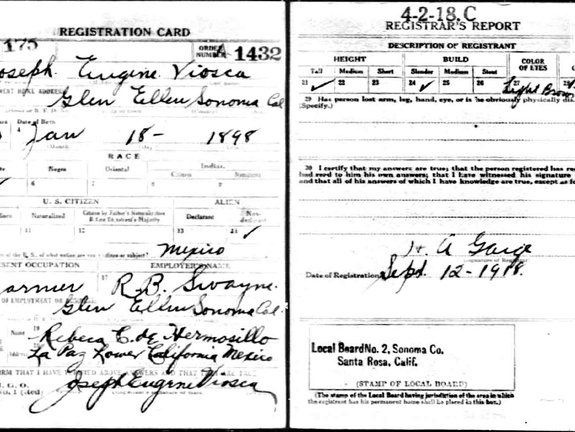 REGISTRATION CARD
1175
ORDER NUMBER
A 1432
Joseph Eugene Viosca
Glen Ellen Sonoma Cal
Date of Birth
Jan 18- 1898
RACE
Negro
Oriental
Indian
Citizen
6
7
8
9
U. S. CITIZEN
ALIEN
Naturalized
Citizen by Father's Naturalization
Declarant
11
12
13
14 ✓
Mexico
PRESENT OCCUPATION
EMPLOYER'S NAME
Farmer R. B. Swayne
Glen Ellen Sonoma Cal.
Rebeca C. de Hermosillo
La Paz Lower California Mexico
Joseph Eugene Viosca
4-2-18. C
REGISTRAR'S REPORT
DESCRIPTION OF REGISTRANT
HEIGHT
BUILD
COLOR OF EYES
Tall
Medium
Short
Slender
Medium
Stout
21 ✓
22
23
24 ✓
25
26
27
28
Light Brown
29 Has person lost arm, leg, hand, eye, or is he obviously physically
(Specify.)
30 I certify that my answers are true; that the person registered has
had read to him his own answers; that I have witnessed his signature
and that all of his answers of which I have knowledge are true, except as
Date of Registration Sept. 12-1918
Local Board No. 2, Sonoma Co.
Santa Rosa, Calif.
(STAMP OF LOCAL BOARD)
(The stamp of the Local Board having jurisdiction of the area in which
the registrant has his permanent home shall be placed in this box.)